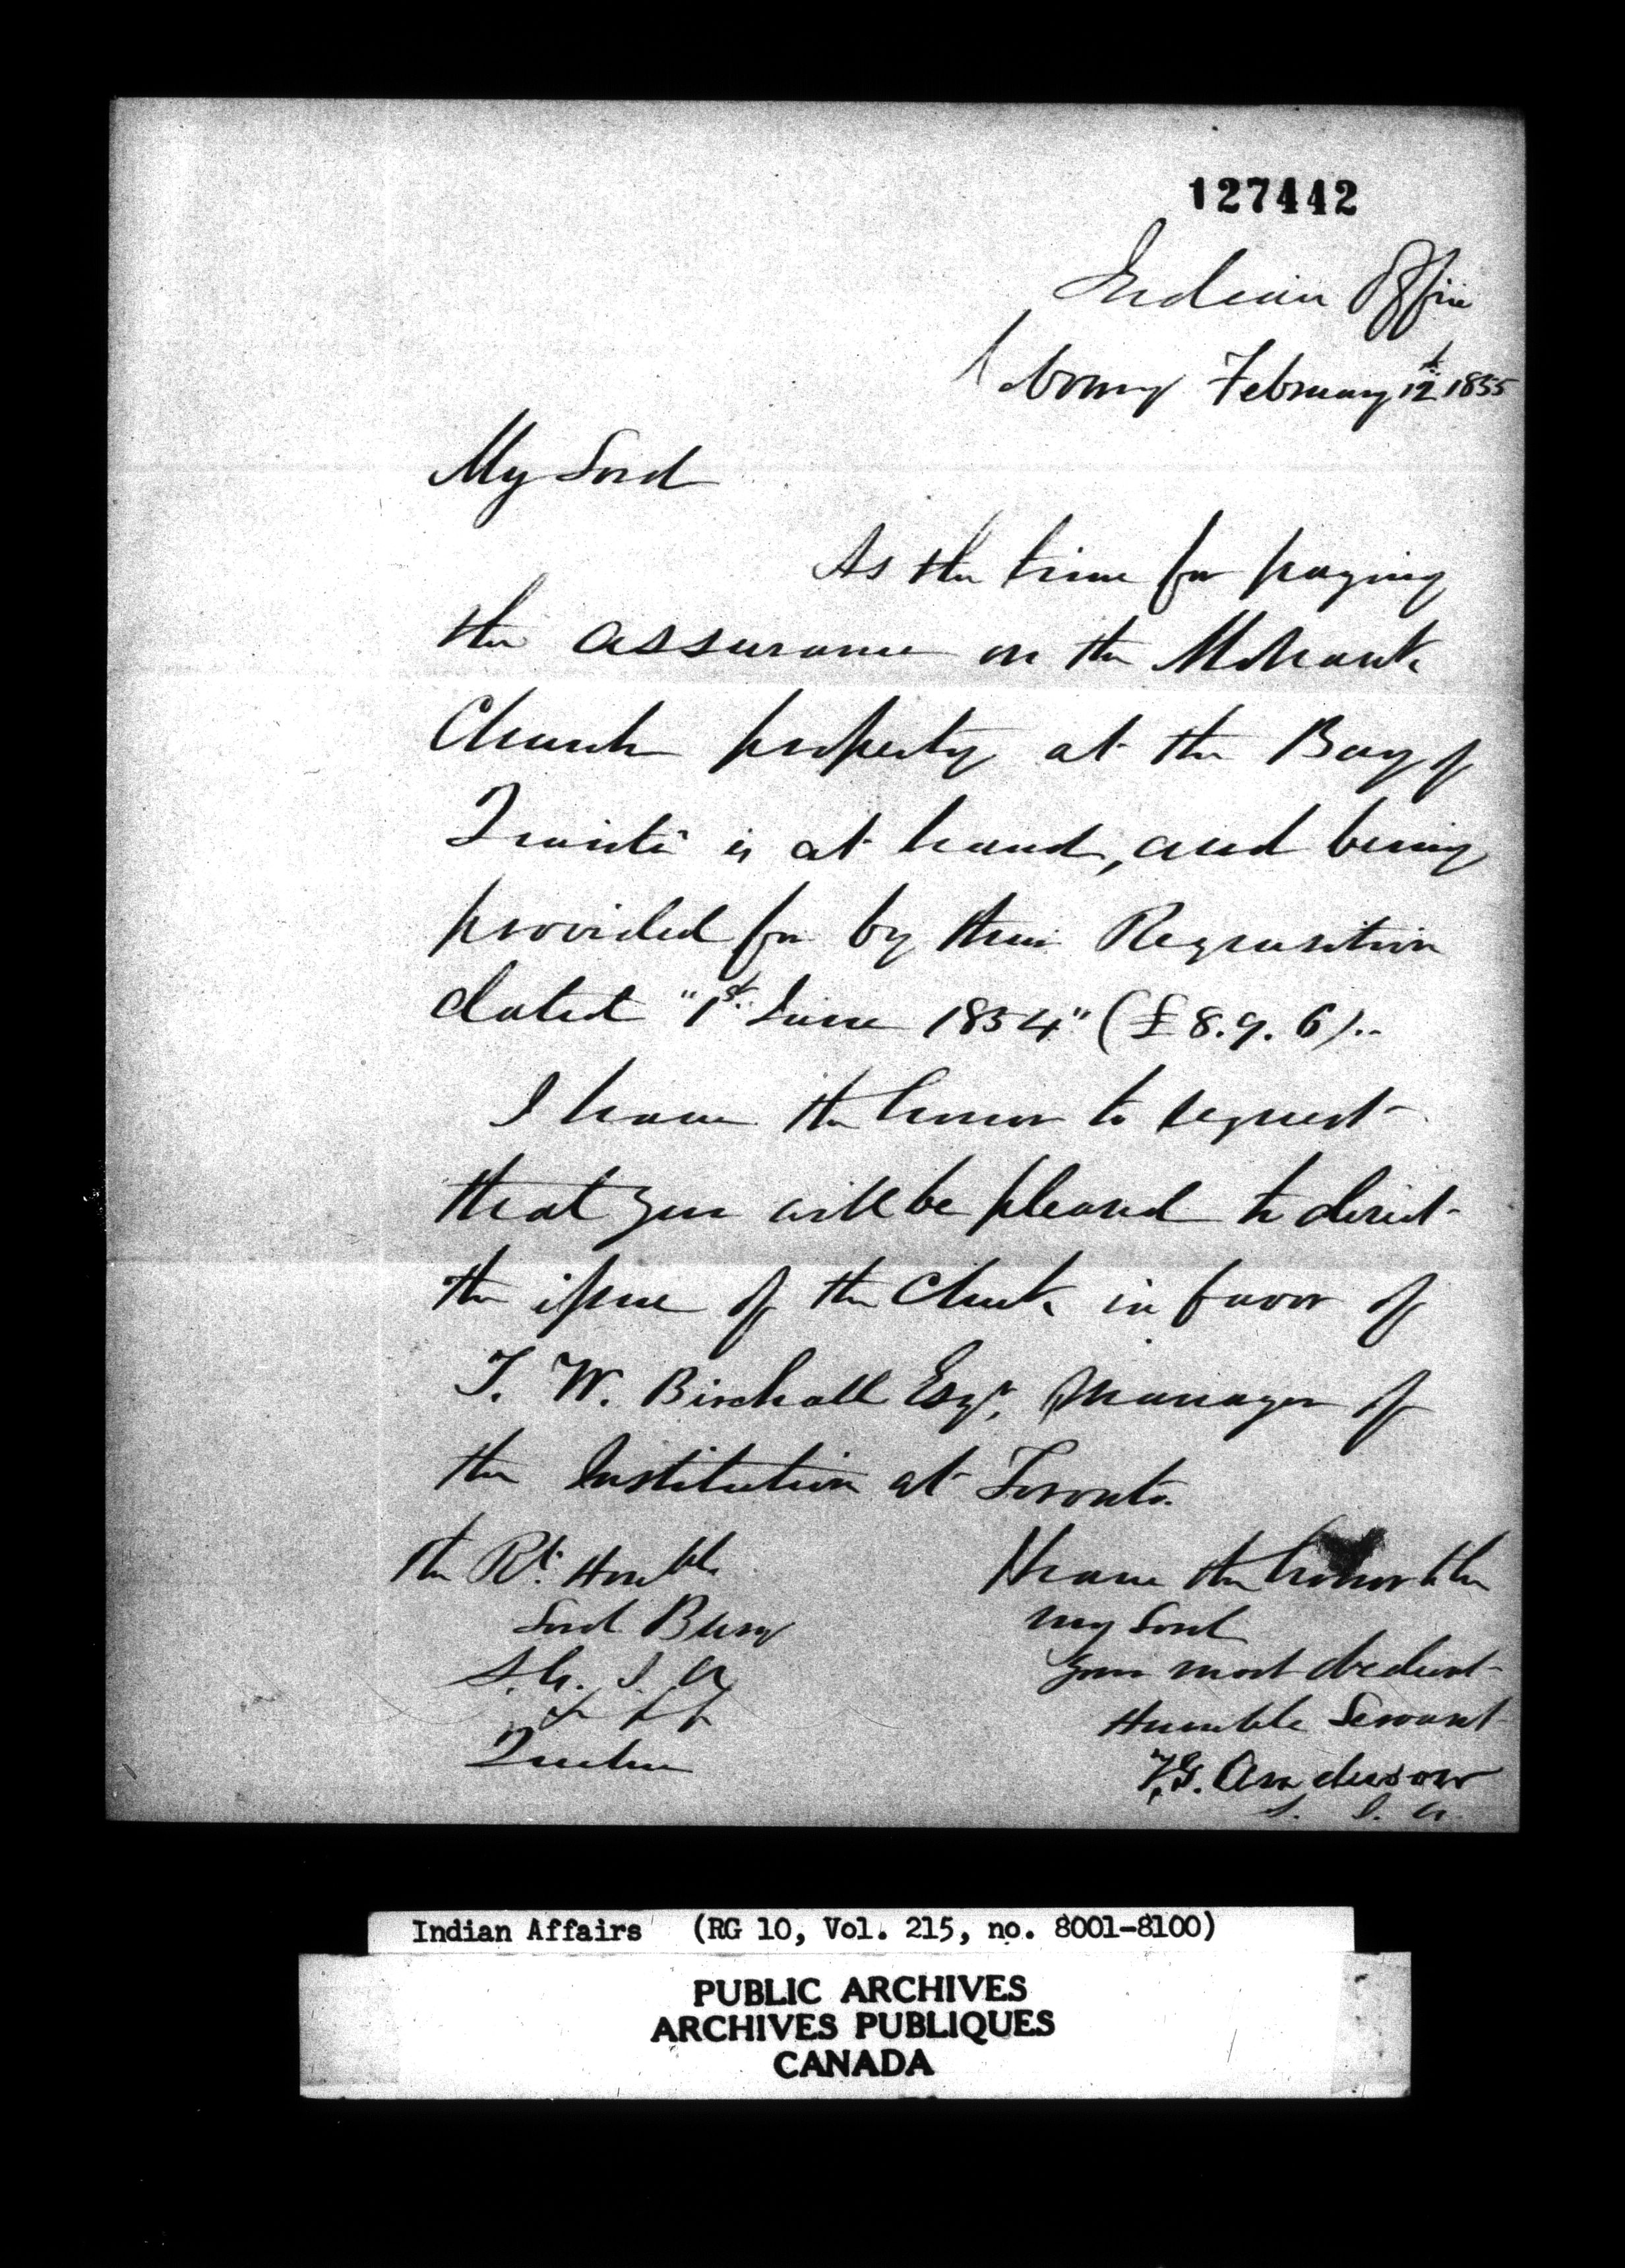 127442
Indian Office
Cobourg February 12th 1855
My Lord
As the time for paying
the assurance on the Mohawk
Church property at the Bay of
Quinté is at hand, and being
provided for by their Requisition
dated "1st June 1854" (£8.9.6)..
I have the honor to request
that you will be pleased to direct
the issue of the Check in favor of
T. W. Birchall Esqr, Manager of
the Institution at Toronto.
I have the honor to be
my Lord
Your most obedient
Humble Servant
T.G. Anderson
S. I. A.
The Rt. Honble
Lord Bury
S.G. I. A
Quebec
Indian Affairs (RG 10, Vol. 215, no. 8001-8100)
PUBLIC ARCHIVES
ARCHIVES PUBLIQUES
CANADA